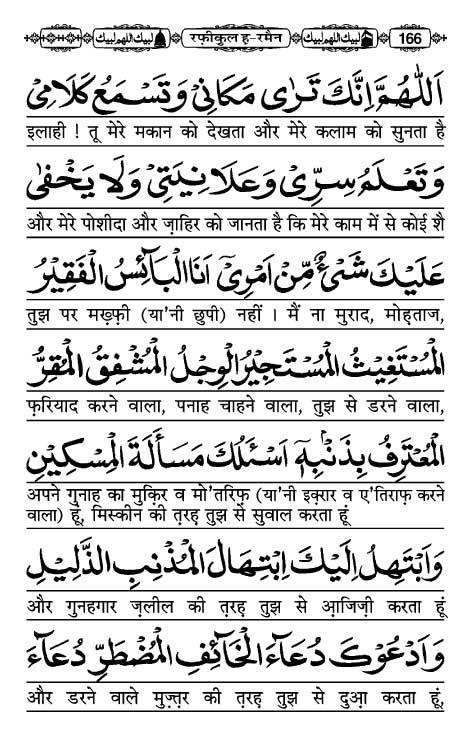 لبيك اللهم لبيك रफ़ीकुल ह-रमैन لبيك اللهم لبيك 166
اَللّٰهُمَّ اِنَّكَ تَرٰى مَكَانِيْ وَتَسْمَعُ كَلَامِيْ
इलाही ! तू मेरे मकान को देखता और मेरे कलाम को सुनता है
وَتَعْلَمُ سِرِّيْ وَعَلَانِيَتِيْ وَلَا يَخْفٰى
और मेरे पोशीदा और ज़ाहिर को जानता है कि मेरे काम में से कोई शै
عَلَيْكَ شَيْءٌ مِّنْ اَمْرِيْ اَنَا الْبَآئِسُ الْفَقِيْرُ
तुझ पर मख़्फ़ी (या'नी छुपी) नहीं । मैं ना मुराद, मोह़ताज,
الْمُسْتَغِيْثُ الْمُسْتَجِيْرُ الْوَجِلُ الْمُشْفِقُ الْمُقِرُّ
फ़रियाद करने वाला, पनाह चाहने वाला, तुझ से डरने वाला,
الْمُعْتَرِفُ بِذَنْبِهٖ اَسْئَلُكَ مَسْأَلَةَ الْمِسْكِيْنِ
अपने गुनाह का मुक़िर व मो'तरिफ़ (या'नी इक़्रार व ए'तिराफ़ करने
वाला) हूं, मिस्कीन की त़रह़ तुझ से सुवाल करता हूं
وَابْتَهِلُ اِلَيْكَ اِبْتِهَالَ الْمُذْنِبِ الذَّلِيْلِ
और गुनहगार ज़लील की त़रह़ तुझ से आ़जिज़ी करता हूं
وَاَدْعُوْكَ دُعَآءَ الْخَآئِفِ الْمُضْطَرِّ دُعَآءَ
और डरने वाले मुज़्त़र की त़रह़ तुझ से दुआ़ करता हूं,